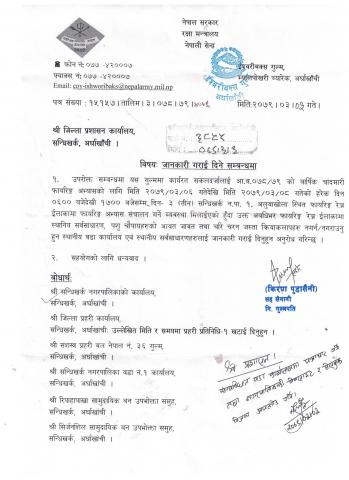 नेपाल सरकार
रक्षा मन्त्रालय
नेपाली सेना
ईश्वरीबक्स गुल्म,
अर्घाखाँची
फोन नं: ०७७ -४२०००७
फ्याक्स नं: ०७७ -४२०००७
Email: coy-ishworibaks@nepalarmy.mil.np
पत्र संख्या : १५१५७।तालिम।३।०७८।७९।
मिति:२०७९।०३।०१ गते।
श्री जिल्ला प्रशासन कार्यालय,
सन्धिखर्क, अर्घाखाँची ।
विषय: जानकारी गराई दिने सम्बन्धमा
१ . उपरोक्त सम्बन्धमा यस गुल्ममा कार्यरत सकलदर्जालाई आ.व.०७८/७९ को बार्षिक चांदमारी
फायरिङ अभ्यासको लागि मिति २०७९/०३/०६ गतेदेखि मिति २०७९/०३/०८ गतेको हरेक दिन
०६०० बजेदेखी १७०० बजेसम्म, दिन- ३ (तीन) सन्धिखर्क न.पा. १, अलुवाखोला स्थित फायरिङ रेञ्ज
ईलाकामा फायरिङ अभ्यास संचालन गर्ने व्यवस्था मिलाईएको हुँदा उक्त अवधिभर फायरिङ रेञ्ज ईलाकामा
स्थानिय सर्वसाधारण, पशु चौपायहरुको आवत जावत तथा चरि चरन जस्ता कियाकलापहरु नगर्न/नगराउनु
हुन स्थानीय वडा कार्यालय एवं स्थानीय सर्वसाधारणहरुलाई जानकारी गराई दिनुहुन अनुरोध गरिन्छ ।
२ . सहयोगको लागि धन्यवाद ।
बोधार्थ:
(किरण पुडासैनी)
सह सेनानी
नि. गुल्मपति
श्री सन्धिखर्क नगरपालिकाको कार्यालय,
सन्धिखर्क, अर्घाखाँची ।
श्री जिल्ला प्रहरी कार्यालय,
सन्धिखर्क, अर्घाखाँची: उल्लेखित मिति र समयमा प्रहरी प्रतिनिधि-१ खटाई दिनुहुन ।
श्री सशस्त्र प्रहरी बल नेपाल नं. ३६ गुल्म,
सन्धिखर्क, अर्घाखाँची ।
श्री सन्धिखर्क नगरपालिका वडा नं.१ कार्यालय,
सन्धिखर्क, अर्घाखाँची ।
श्री रिपाहापाखा सामुदायिक वन उपभोक्ता समुह,
सन्धिखर्क, अर्घाखाँची ।
श्री सिर्जनशिल सामुदायिक वन उपभोक्ता समुह,
सन्धिखर्क, अर्घाखाँची ।